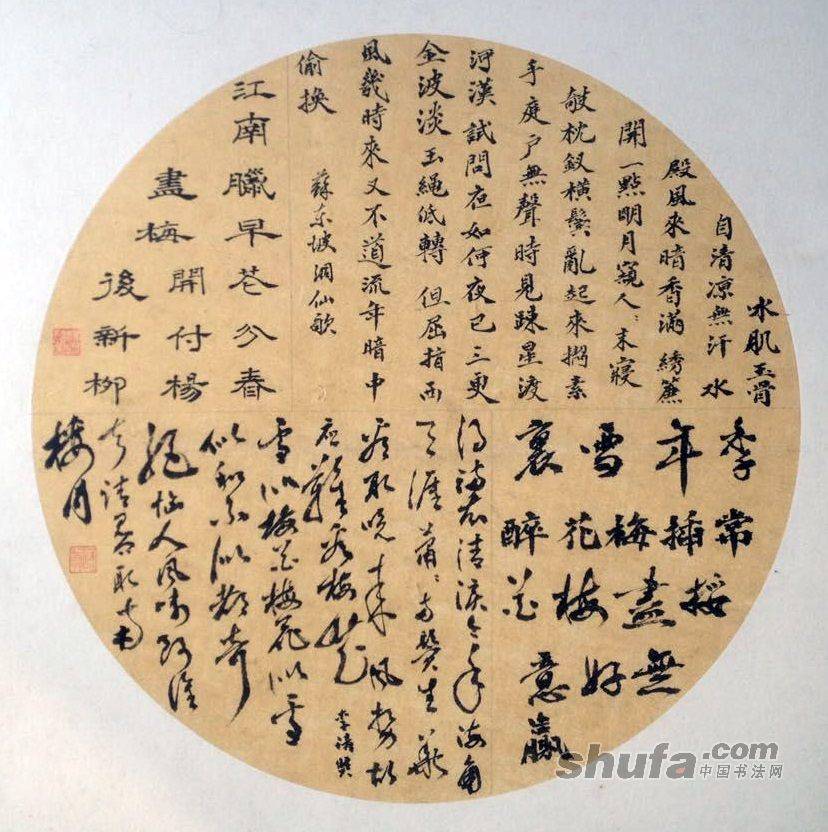 水肌玉骨
自清凉無汗水
殿風來暗香滿綉簾
開一點明月窺人〻未寢
攲枕釵橫鬢亂起來攜素
手庭戶無聲時見踈星渡
河漢試問夜如何夜已三更
金波淡玉繩低轉但屈指西
風幾時來又不道流年暗中
偷換
蘇東坡洞仙歌
江
南
臘盡
早梅
花開後
分付新
春楊柳
季年雪裏
常插梅花醉
挼盡梅花
無好意
贏
得滿衣清淚今年海角
天涯蕭〻兩鬢生華
看取晚來風勢故
應難看梅花
李清照
雪似梅花梅花似雪
似和不似都奇
絕惱人風味阿誰
知請君問取南
樓月
shufa.com
中国书法网